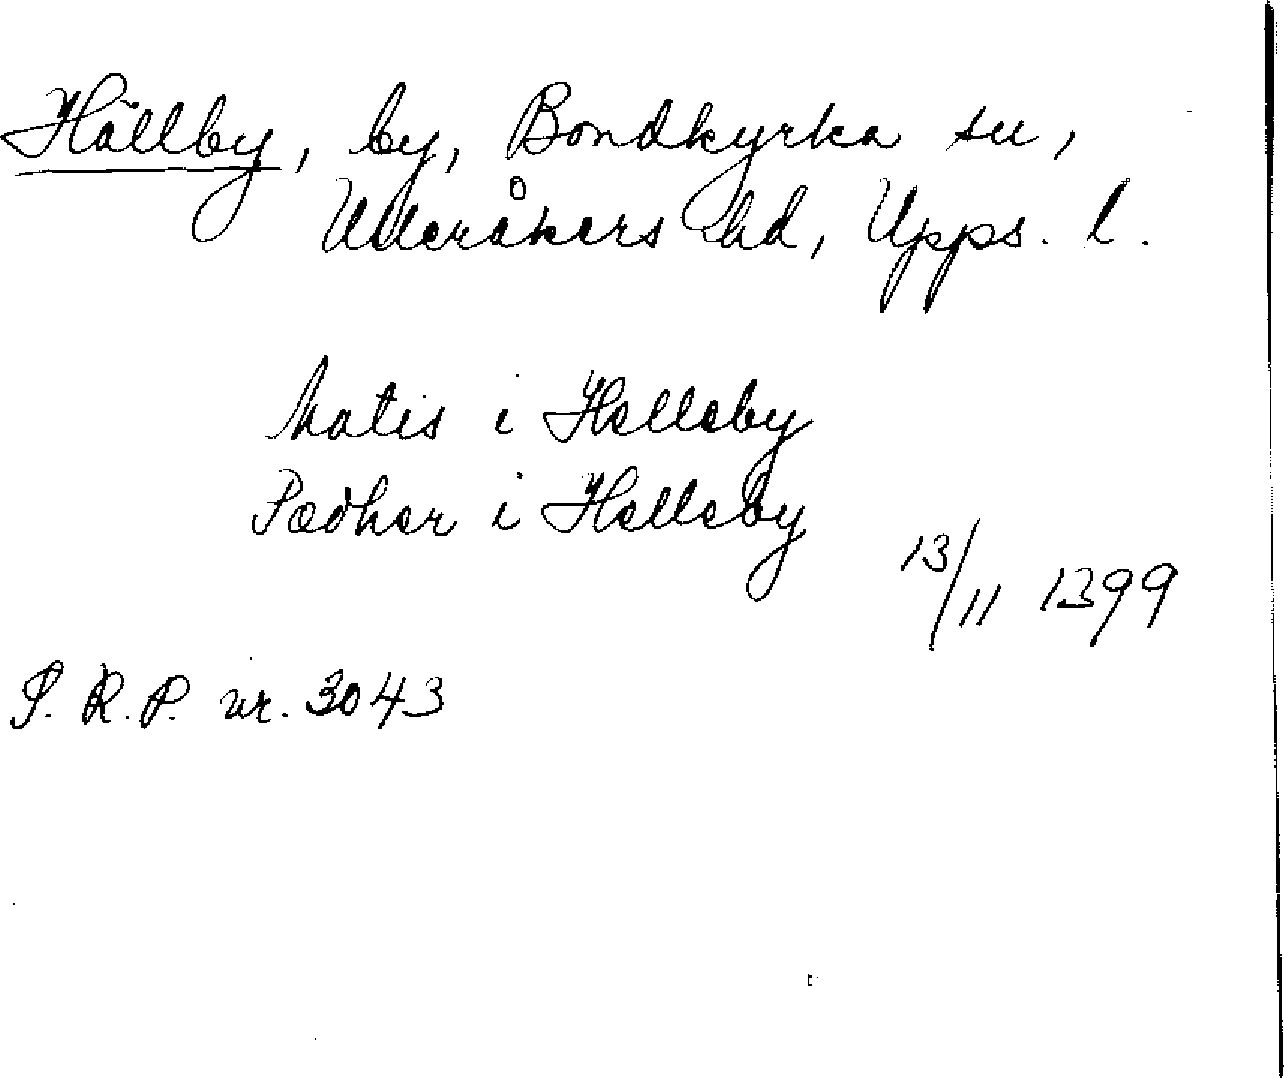 Hällby, by, Bondkyrka sn,
Ulleråkers hd, Upps. l.
Matis i Helleby
Pædher i Helleby
13/11 1399
S. R. P. nr. 3043